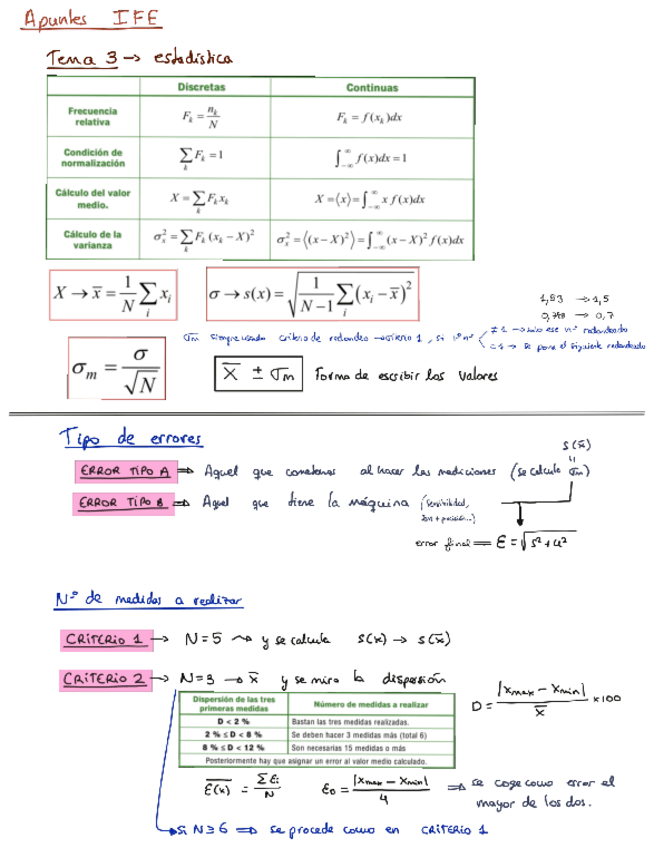 Apuntes IFE
Tema 3 → estadística
Discretas Continuas
Frecuencia relativa F_k = n_k/N F_k = f(x_k)dx
Condición de normalización ∑_k F_k = 1 ∫_{-∞}^{∞} f(x)dx = 1
Cálculo del valor medio. X = ∑_k F_k x_k X = ⟨x⟩ = ∫_{-∞}^{∞} x f(x)dx
Cálculo de la varianza σ_x² = ∑_k F_k (x_k - X)² σ_x² = ⟨(x - X)²⟩ = ∫_{-∞}^{∞} (x - X)² f(x)dx
X → x̄ = 1/N ∑_i x_i σ → s(x) = √(1/(N-1) ∑_i (x_i - x̄)²)
→ 1,5
→ 0,7
σm siempre usado criterio de redondeo → criterio 1, si 1º nº
≠ 1 → solo ese nº redondeado
= 1 → se pone el siguiente redondeado
σ_m = σ/√N
x̄ ± σm forma de escribir los valores
Tipo de errores
s(x̄)
ERROR TIPO A ⇒ Aquel que cometemos al hacer las mediciones (se calcula σm)
ERROR TIPO B ⇒ Aquel que tiene la máquina (sensibilidad,
error final = ε = √(s² + u²)
Nº de medidas a realizar
CRITERIO 1 → N=5 ⤳ y se calcula s(x) → s(x̄)
CRITERIO 2 → N=3 → x̄ y se mira la dispersión
D = |xmax - xmin| / x̄ ×100
Dispersión de las tres primeras medidas Número de medidas a realizar
D < 2 % Bastan las tres medidas realizadas.
2 % ≤ D < 8 % Se deben hacer 3 medidas más (total 6)
8 % ≤ D < 12 % Son necesarias 15 medidas o más
Posteriormente hay que asignar un error al valor medio calculado.
ε(x) = ∑εi / N εD = |xmax - xmin| / 4 ⇒ se coge como error el
mayor de los dos.
Si N≥6 ⇒ se procede como en CRITERIO 1